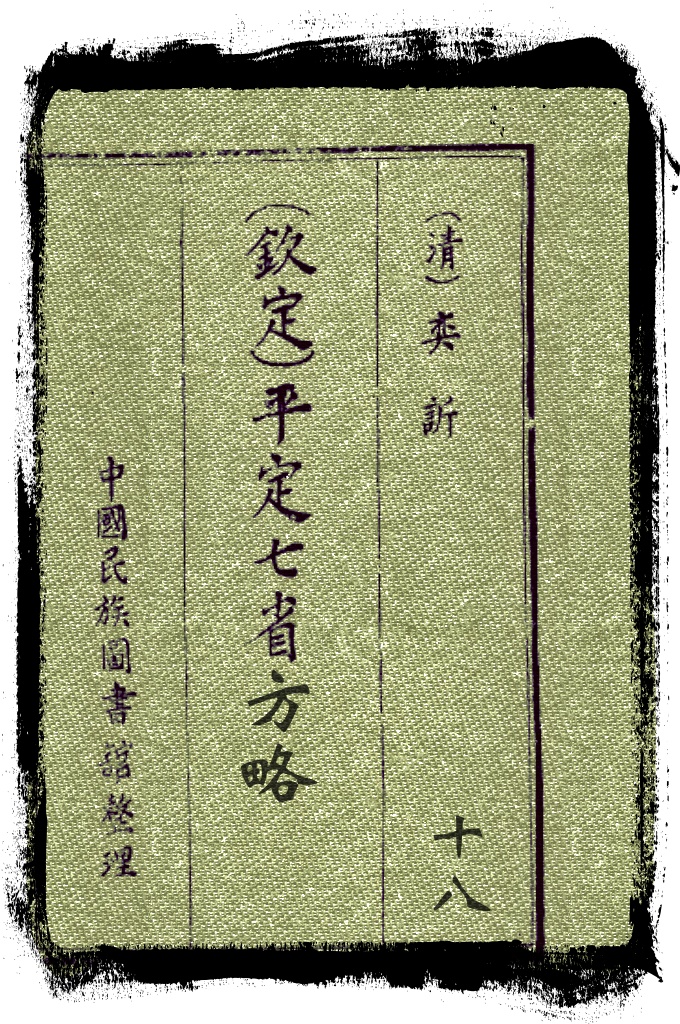 （清）奕訢
十八
（欽定）平定七省方略
中國民族圖書館整理